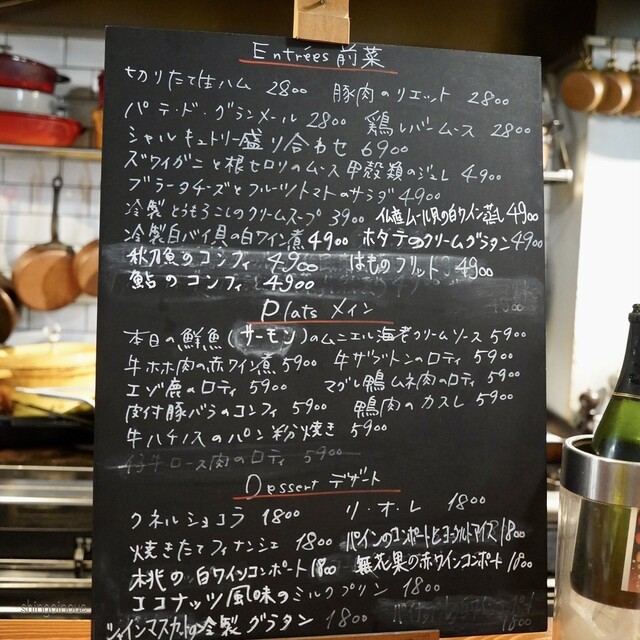 Entrées 前菜
切りたて生ハム 2800 豚肉のリエット 2800
パテ・ド・グランメール 2800 鶏レバームース 2800
シャルキュトリー盛り合わせ 6900
ズワイガニと根セロリのムース 甲殻類のジュレ 4900
ブラータチーズとフルーツトマトのサラダ 4900
冷製とうもろこしのクリームスープ 3900 仏産ムール貝の白ワイン蒸し 4900
冷製白バイ貝の白ワイン煮 4900 ホタテのクリームグラタン 4900
秋刀魚のコンフィ 4900 はものフリット 4900
鮎のコンフィ 4900
Plats メイン
本日の鮮魚(サーモン)のムニエル海老クリームソース 5900
牛ホホ肉の赤ワイン煮 5900 牛ザブトンのロティ 5900
エゾ鹿のロティ 5900 マグレ鴨ムネ肉のロティ 5900
骨付豚バラのコンフィ 5900 鴨肉のカスレ 5900
牛ハチノスのパン粉焼き 5900
仔牛ロース肉のロティ 5900
Dessert デザート
クネルショコラ 1800 リ・オ・レ 1800
焼きたてフィナンシェ 1800 パインのコンポートとヨーグルトアイス 1800
桃の白ワインコンポート 1800 無花果の赤ワインコンポート 1800
ココナッツ風味のミルクプリン 1800
シャインマスカットの冷製グラタン 1800
shingoinoue